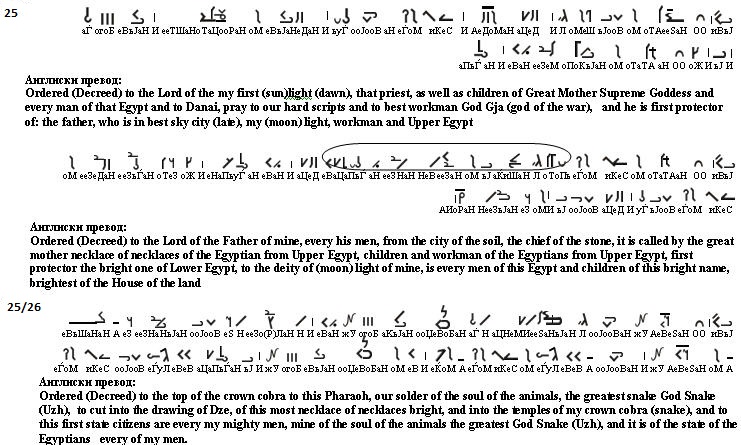 25
аЃ огоБ еВъЈаН И ееТШаНоТаЦооРаН оМ еВъЈаНеДаН И ъуЃ ооЈооВ аН еГоМ иКеС И АеДоМаН аЦеД И Л оМеШ ъЈооВ оМ оТАееЅаН ОО иВъЈ
аПъЃ аН И еВаН ееЗеМ оПоКъЈаН оМ оТаТА аН ОО оЖ ИъЈ И
Англиски превод:
Ordered (Decreed) to the Lord of the my first (sun)light (dawn), that priest, as well as children of Great Mother Supreme Goddess and
every man of that Egypt and to Danai, pray to our hard scripts and to best workman God Gja (god of the war), and he is first protector
of: the father, who is in best sky city (late), my (moon) light, workman and Upper Egypt
оМ ееЗеДаН ееЗъГаН оТеЗ оЖ И еНаПъуГ аН еВаН И аЦеД еВаЦаПъГ аН ееЗНаН НеВееЗаН оМ ъЈаКиШаН Л оТоПъ еГоМ иКеС оМ оТаТАаН ОО иВъЈ
АИоРаН НееЗъЈаН еЗ оМИ ъЈ ооЈооВ аЦеД И уГ ъЈооВ еГоМ иКеС
Англиски превод:
Ordered (Decreed) to the Lord of the Father of mine, every his men, from the city of the soil, the chief of the stone, it is called by the great
mother necklace of necklaces of the Egyptian from Upper Egypt, children and workman of the Egyptians from Upper Egypt, first
protector the bright one of Lower Egypt, to the deity of (moon) light of mine, is every men of this Egypt and children of this bright name,
brightest of the House of the land
25/26
еВъШаНаН А еЗ ееЗНаНъЈаН ооЈооВ еЅ НееЗо(Р)ЛаН Н И еВаН жУ огоБ аКъЈаН ооЏеВоБаН аГ Н аЦНеМИееЅаНъЈаН Л ооЈооВаН жУ АеВеЅаН ОО иВъЈ
еГоМ иКеС ооЈооВ еГуЛеВеВ аЦаПъГаН ъЈ И жУ огоБ еВъЈаН ооЏеВоБаН оМ еВ И еКоМ А еГоМ иКеС оМ еГуЛеВеВ А ооЈооВаН жУ АеВеЅаН оМ А
Англиски превод:
Ordered (Decreed) to the top of the crown cobra to this Pharaoh, our solder of the soul of the animals, the greatest snake God Snake
(Uzh), to cut into the drawing of Dze, of this most necklace of necklaces bright, and into the temples of my crown cobra (snake), and to
this first state citizens are every my mighty men, mine of the soul of the animals the greatest God Snake (Uzh), and it is of the state of the
Egyptians every of my men.